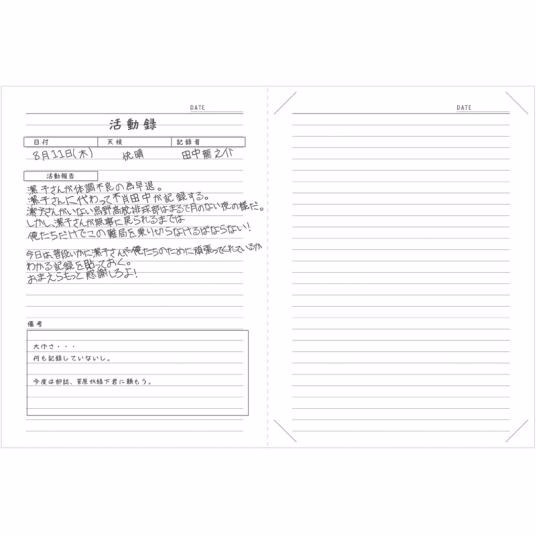 DATE
活動録
日付 天候 記録者
8月11日(木) 快晴 田中龍之介
活動報告
潔子さんが体調不良の為早退。
潔子さんに代わって不肖田中が記録する。
潔子さんがいない烏野高校排球部はまるで月のない夜の様だ。
しかし、潔子さんが無事に戻られるまでは
俺たちだけでこの難局を乗り切らなければならない!
今日は、普段いかに潔子さんが俺たちのために頑張ってくれているか
わかる記録を貼っておく。
おまえらもっと感謝しろよ!
備考
大作さ・・・
何も記録していないし。
今度は部誌、菅原か縁下君に頼もう。
DATE